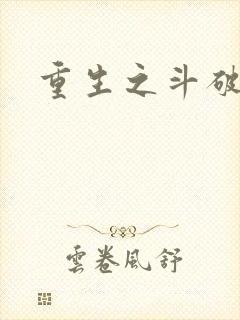 重生之斗破
雲卷風舒